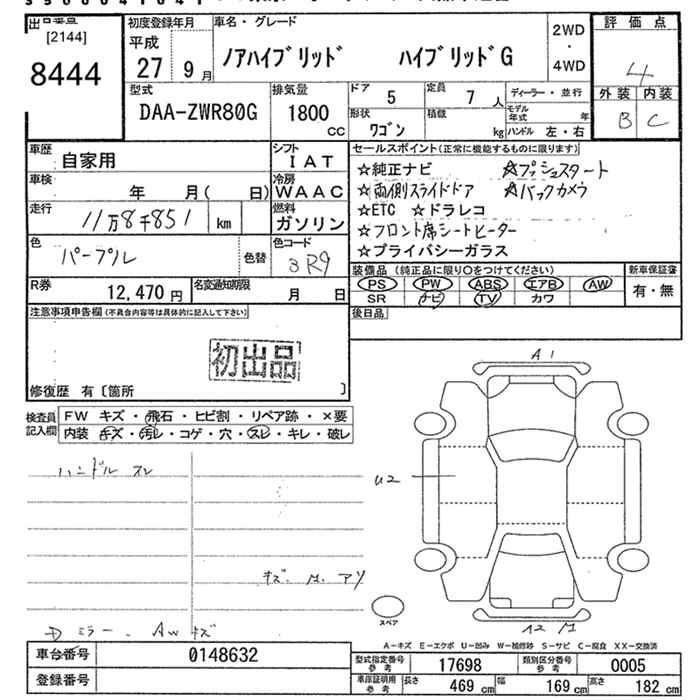 出品番号 [2144]
8444
初度登録年月
平成 27 9月
車名・グレード
ノアハイブリッド ハイブリッドG
2WD・4WD
評価点
4
外装 内装
B C
型式
DAA-ZWR80G
排気量
1800 cc
ドア 5
定員 7人
形状 ワゴン
積載 kg
ディーラー・並行
モデル年式 年
ハンドル 左・右
車歴 自家用
シフト IAT
車検 年 月( 日)
冷房 WAAC
走行 11万8千851 km
燃料 ガソリン
色 パープル
色替
色コード 3R9
セールスポイント(正常に機能するものに限ります)
☆純正ナビ ☆プッシュスタート
☆両側スライドドア ☆バックカメラ
☆ETC ☆ドラレコ
☆フロント席シートヒーター
☆プライバシーガラス
R券 12,470円
名変通知期限 月 日
装備品 (純正品に限り〇をつけてください)
PS PW ABS エアB AW
SR ナビ TV カワ
新車保証書
有・無
後日品
注意事項申告欄(不具合内容等は具体的に記入して下さい)
初出品
修復歴 有〔箇所 〕
検査員記入欄
FW キズ・飛石・ヒビ割・リペア跡・×要
内装 キズ・汚レ・コゲ・穴・スレ・キレ・破レ
ハンドル スレ
キズ. M. アリ
ミラー. AW キズ
A1
U2
スペア
A2 M
A-キズ E-エクボ U-凹み W-補修跡 S-サビ C-腐食 XX-交換済
車台番号 0148632
登録番号
型式指定番号参考 17698
類別区分番号参考 0005
車庫証明用参考
長さ 469cm 幅 169cm 高さ 182cm